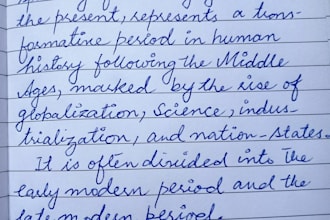 the present, represents a trans-
formative period in human
history following the Middle
Ages, marked by the rise of
globalization, Science, indus-
trialization, and nation-states.
It is often divided into The
early modern period and the
late modern period.